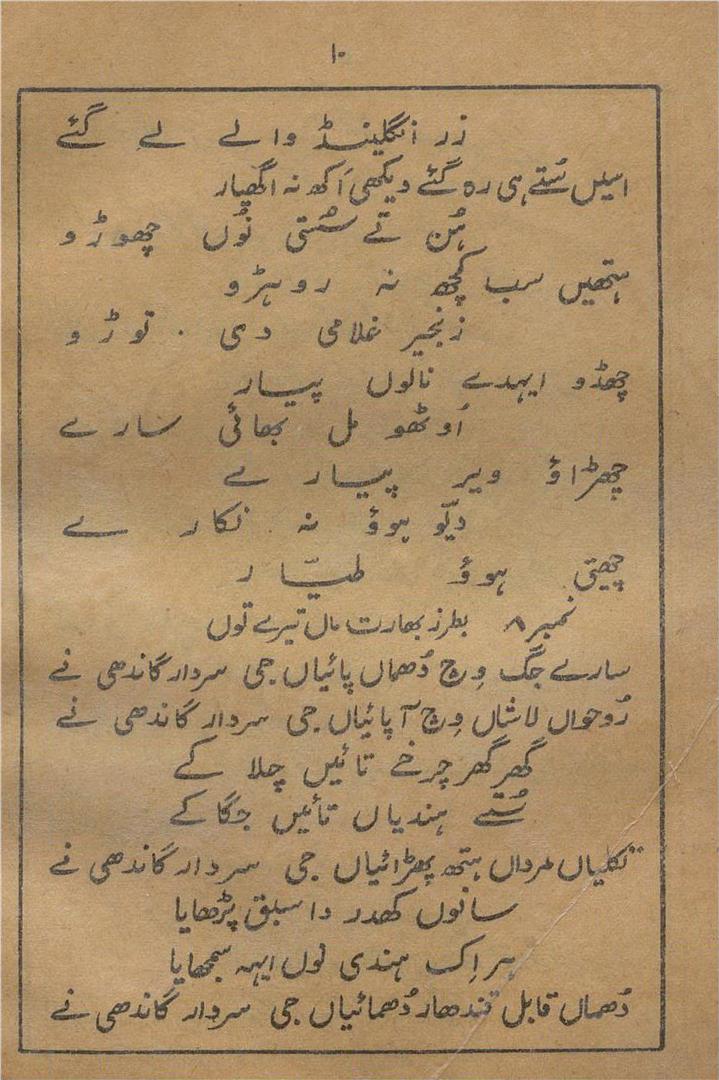 ۱۰
زر انگلینڈ والے لے گئے
اسیں سُتے ہی رہ گئے دیکھی اَکھ نہ اگھیار
ہُن تے سُستی نُوں چھوڑو
ہتھیں سب کچھ نہ روہڑو
زنجیر غلامی دی توڑو
چھڈو ایہدے نالوں پیار
اُوٹھو مل بھائی سارے
چھڑاؤ ویر پیارے
دبّو ہوؤ نہ نکارے
چھیتی ہوؤ طیّار
نمبر ۸ بطرز بھارت مال تیرے توں
سارے جگ وِچ دُھماں پائیاں جی سردار گاندھی نے
رُوحواں لاشاں وِچ آ پائیاں جی سردار گاندھی نے
گھر گھر چرخے تائیں چلا کے
سُتے ہندیاں تائیں جگا کے
تکلیاں مرداں ہتھ پھڑائیاں جی سردار گاندھی نے
سانوں کھدر دا سبق پڑھایا
ہر اِک ہندی نوں ایہہ سمجھایا
دُھماں قابل قندھار دُھمائیاں جی سردار گاندھی نے